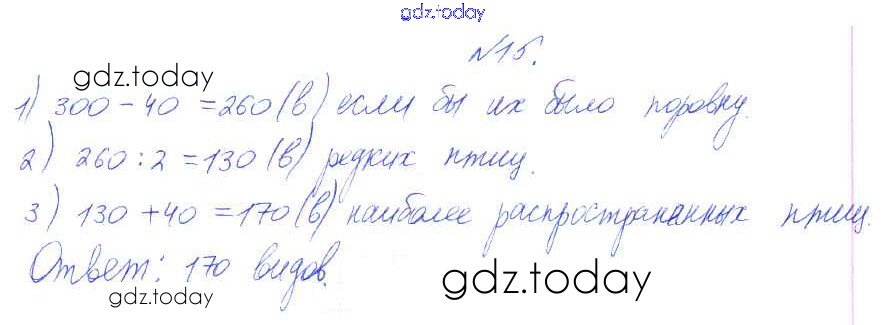 gdz.today
№15.
gdz.today
1) 300 - 40 = 260 (в) если бы их было поровну.
2) 260 : 2 = 130 (в) редких птиц.
3) 130 + 40 = 170 (в) наиболее распространенных птиц.
Ответ: 170 видов.
gdz.today
gdz.today